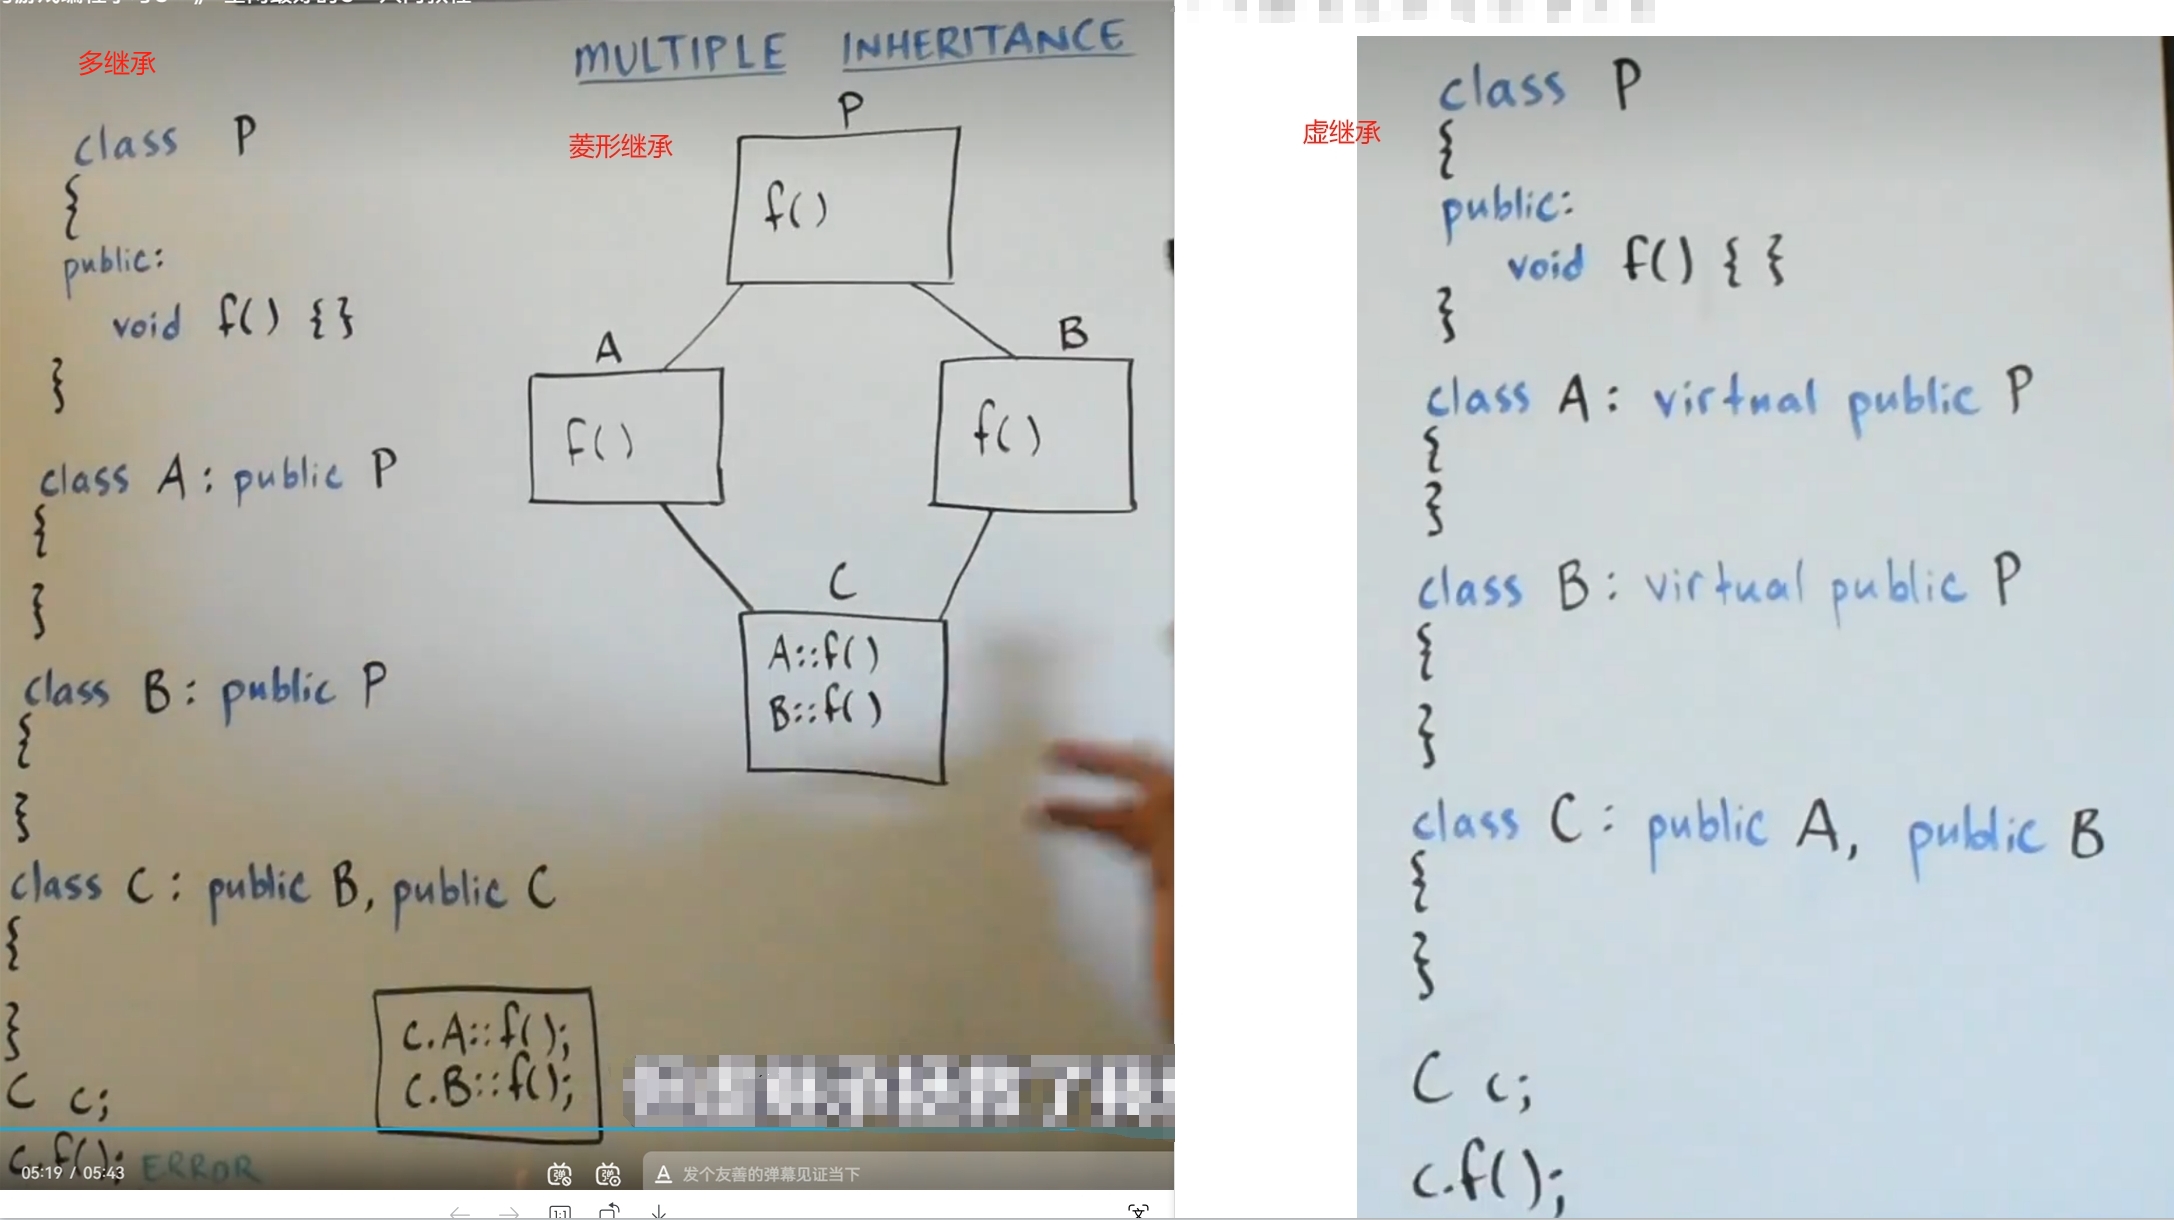 多继承
MULTIPLE INHERITANCE
菱形继承
class P
{
public:
void f() {}
}
class A: public P
{
}
class B: public P
{
}
class C: public B, public C
{
}
C c;
c.f(); ERROR
c.A::f();
c.B::f();
P
f()
A
f()
B
f()
C
A::f()
B::f()
05:19 / 05:43
弹
弹
A 发个友善的弹幕见证当下
1:1
文
虚继承
class P
{
public:
void f() { }
}
class A: virtual public P
{
}
class B: virtual public P
{
}
class C: public A, public B
{
}
C c;
c.f();